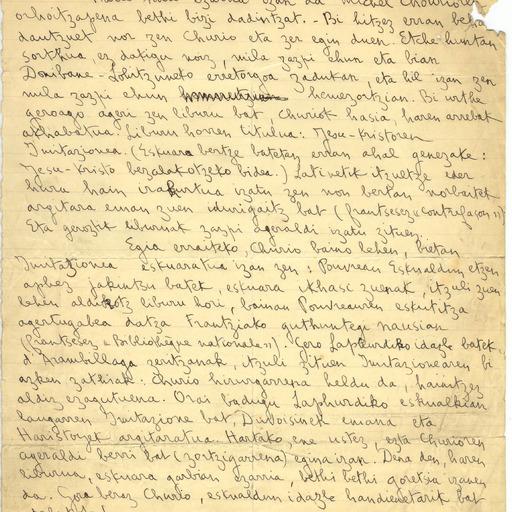 orhoitzapena bethi bizi dadintzat. - Bi hitzez erran behar
dautzuet nor zen Churio eta zer egin duen. Etche huntan
sorthua, ez dakigu noiz, mila zazpi ehun eta bian
Donibane-Lohitzuneko erretorgoa zadukan, eta hil izan zen
mila zazpi ehun hemezortzian. Bi urthe
geroago ageri zen liburu bat, Churiok hasia, haren arrebak
akhabatua. Liburu horren titulua: Jesu-Kristoren
Imitazionea. (Eskuara bertze batetan erran ahal genezake:
Jesu-Kristo bezalakotzeko bidea.) Latinetik itzultze eder
hura hain irakurtua izatu zen non berban norbaitek
argitara eman zuen idurigaitz bat (frantsesez "contrefaçon")
Eta geroztik liburuak zazpi ageraldi izatu zituen.
Egia erraiteko, Churio baino lehen, bietan
Imitazionea eskuaratua izan zen: Pouvreau Eskualdun etzen
aphez jakintsu batek, eskuara ikhasi zuenak, itzuli zuen
lehen aldikotz liburu hori, bainan Pouvreauren eskutitza
agertugabea datza Frantziako guthuntegi nausian
(frantsesez "Bibliothèque nationale"). Gero Laphurdiko idazle batek
d'Arambillaga zeritzanak, itzuli zituen Imitazionearen bi
azken zathiak: Churio hirurgarrena heldu da, hainitzez
aldiz ezagutuena. Orai badugu Laphurdiko eskualkian
laugarren Imitazione bat, Duvoisinek emana eta
Haristoyek argitaratua. Hartako, ene ustez, ezta Churioren
ageraldi berri bat (zortzigarrena) egina izan. Dena den, haren
liburua, eskuara garbian ezarria, bethi bethi goretsia izanen
da. Gora beraz Churio, eskualdun idazle handienetarik bat